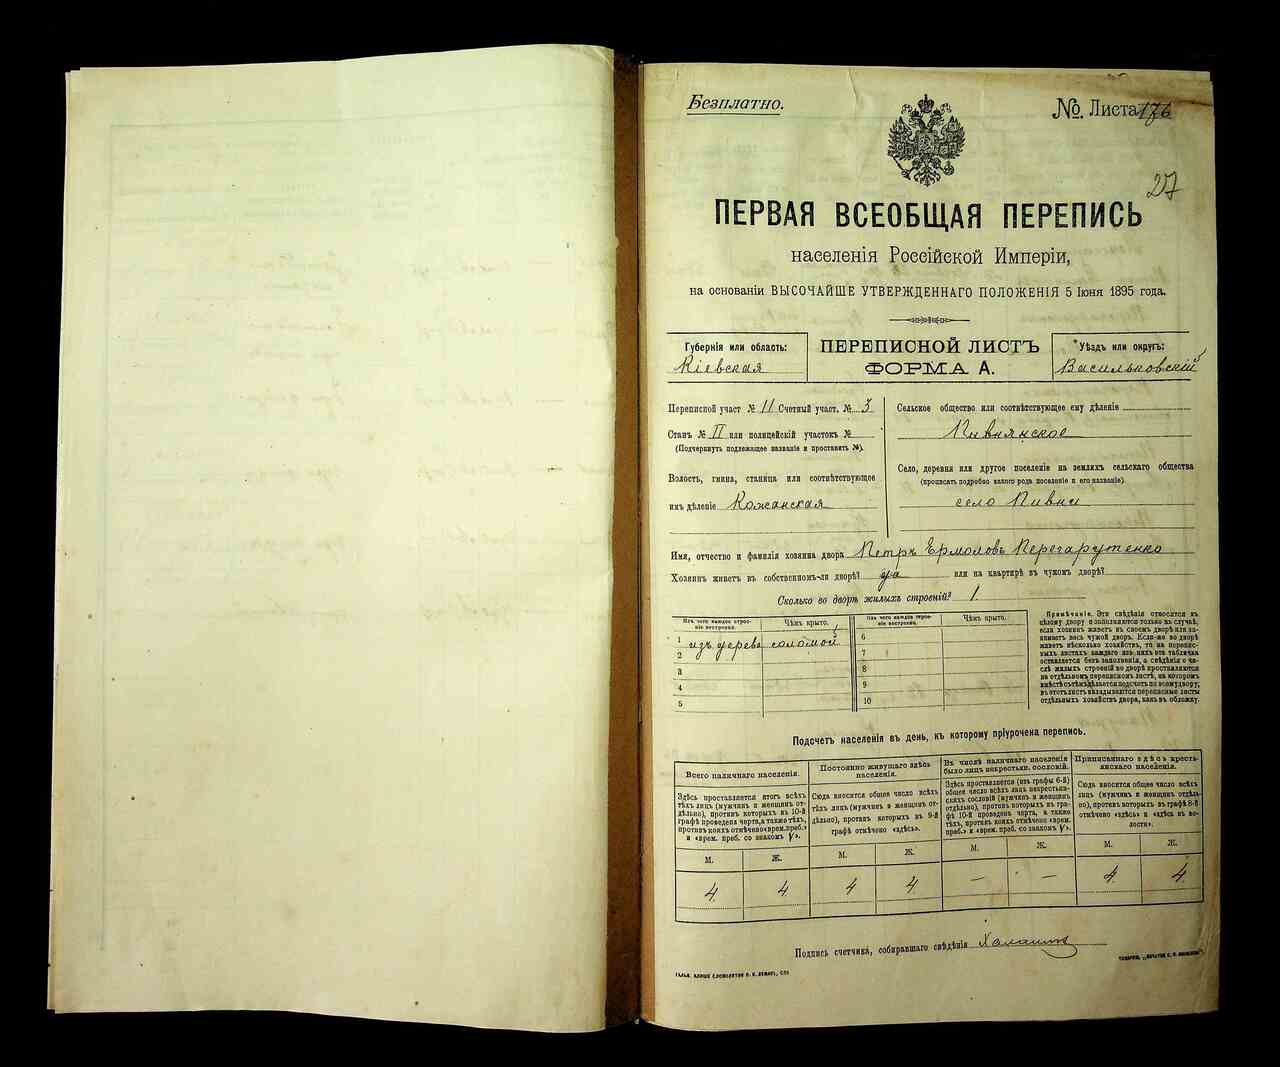 Безплатно.
№. Листа 176
27
ПЕРВАЯ ВСЕОБЩАЯ ПЕРЕПИСЬ
населенія Россійской Имперіи,
на основаніи ВЫСОЧАЙШЕ УТВЕРЖДЕННАГО ПОЛОЖЕНІЯ 5 Іюня 1895 года.
Губернія или область:
Кіевская
ПЕРЕПИСНОЙ ЛИСТЪ
ФОРМА А.
*Уѣздъ или округъ:
Васильковскій
Переписной участ. № 11 Счетный участ. № 3
Станъ № II или полицейскій участокъ №
(Подчеркнуть подлежащее названіе и проставить №).
Волость, гмина, станица или соотвѣтствующее
имъ дѣленіе Кожанская
Сельское общество или соотвѣтствующее ему дѣленіе
Пивнянское
Село, деревня или другое поселеніе на земляхъ сельскаго общества
(прописать подробно какого рода поселеніе и его названіе).
село Пивни
Имя, отчество и фамилія хозяина двора Петръ Ермоловъ Перегарутенко
Хозяинъ живетъ въ собственномъ-ли дворѣ? да или на квартирѣ въ чужомъ дворѣ?
Сколько во дворѣ жилыхъ строеній? 1
Изъ чего каждое строе-
ніе построено.
Чѣмъ крыто.
1 изъ дерева соломой
2
3
4
5
Изъ чего каждое строе-
ніе построено.
Чѣмъ крыто.
6
7
8
9
10
Примѣчаніе. Эти свѣдѣнія относятся къ
цѣлому двору и заполняются только въ случаѣ,
если хозяинъ живетъ въ своемъ дворѣ или за-
нимаетъ весь чужой дворъ. Если-же во дворѣ
живетъ нѣсколько хозяйствъ, то на перепис-
ныхъ листахъ каждаго изъ нихъ эта табличка
оставляется безъ заполненія, а свѣдѣнія о чи-
слѣ жилыхъ строеній во дворѣ проставляются
на отдѣльномъ переписномъ листѣ, на которомъ
вмѣстѣ съ тѣмъ дѣлается подсчетъ по всему двору;
въ этотъ листъ вкладываются переписные листы
отдѣльныхъ хозяйствъ двора, какъ въ обложку.
Подсчетъ населенія въ день, къ которому пріурочена перепись.
Всего наличнаго населенія.
Здѣсь проставляется итогъ всѣхъ
тѣхъ лицъ (мужчинъ и женщинъ от-
дѣльно), противъ которыхъ въ 10-й
графѣ проведена черта, а также тѣхъ,
противъ коихъ отмѣчено «врем. преб.»
и «врем. преб. со знакомъ V».
М. Ж.
4 4
Постоянно живущаго здѣсь
населенія.
Сюда вносится общее число всѣхъ
тѣхъ лицъ (мужчинъ и женщинъ от-
дѣльно), противъ которыхъ въ 9-й
графѣ отмѣчено «здѣсь».
М. Ж.
4 4
Въ числѣ наличнаго населенія
было лицъ некрестьян. сословій.
Здѣсь проставляется (изъ графы 6-й)
общее число всѣхъ лицъ некрестьян-
скихъ сословій (мужчинъ и женщинъ
отдѣльно), противъ которыхъ въ гра-
фѣ 10-й проведена черта, а также
тѣхъ, противъ коихъ отмѣчено «врем.
преб.» и «врем. преб. со знакомъ V».
М. Ж.
— —
Приписаннаго здѣсь кресть-
янскаго населенія.
Сюда вносится общее число всѣхъ
лицъ (мужчинъ и женщинъ отдѣль-
но), противъ которыхъ въ графѣ 8-й
отмѣчено «здѣсь» и «здѣсь въ во-
лости».
М. Ж.
4 4
Подпись счетчика, собиравшаго свѣдѣнія